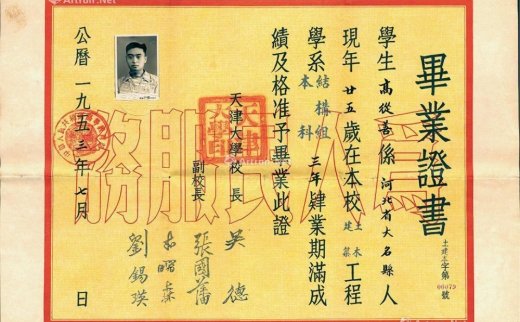 畢業證書
土建工字第
00079號
學生高從善係河北省大名縣人
現年廿五歲在本校土木建築工程
學系結構組本科三年肄業期滿成
績及格准予畢業此證
天津大學校長吳德
副校長張國藩
劉錫瑛
公曆一九五三年七月 日
為人民服務
Artron.Net